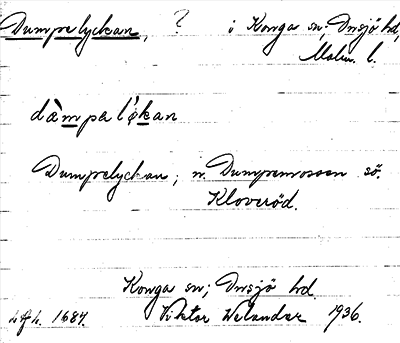 Dumpelyckan, ? i Konga sn; Onsjö hd,
Malm. l.
dàmpalýkan
Dumpelyckan; n. Dumpemossen sö.
Kloveröd.
Konga sn; Onsjö hd.
1687. Viktor Welander 1936.